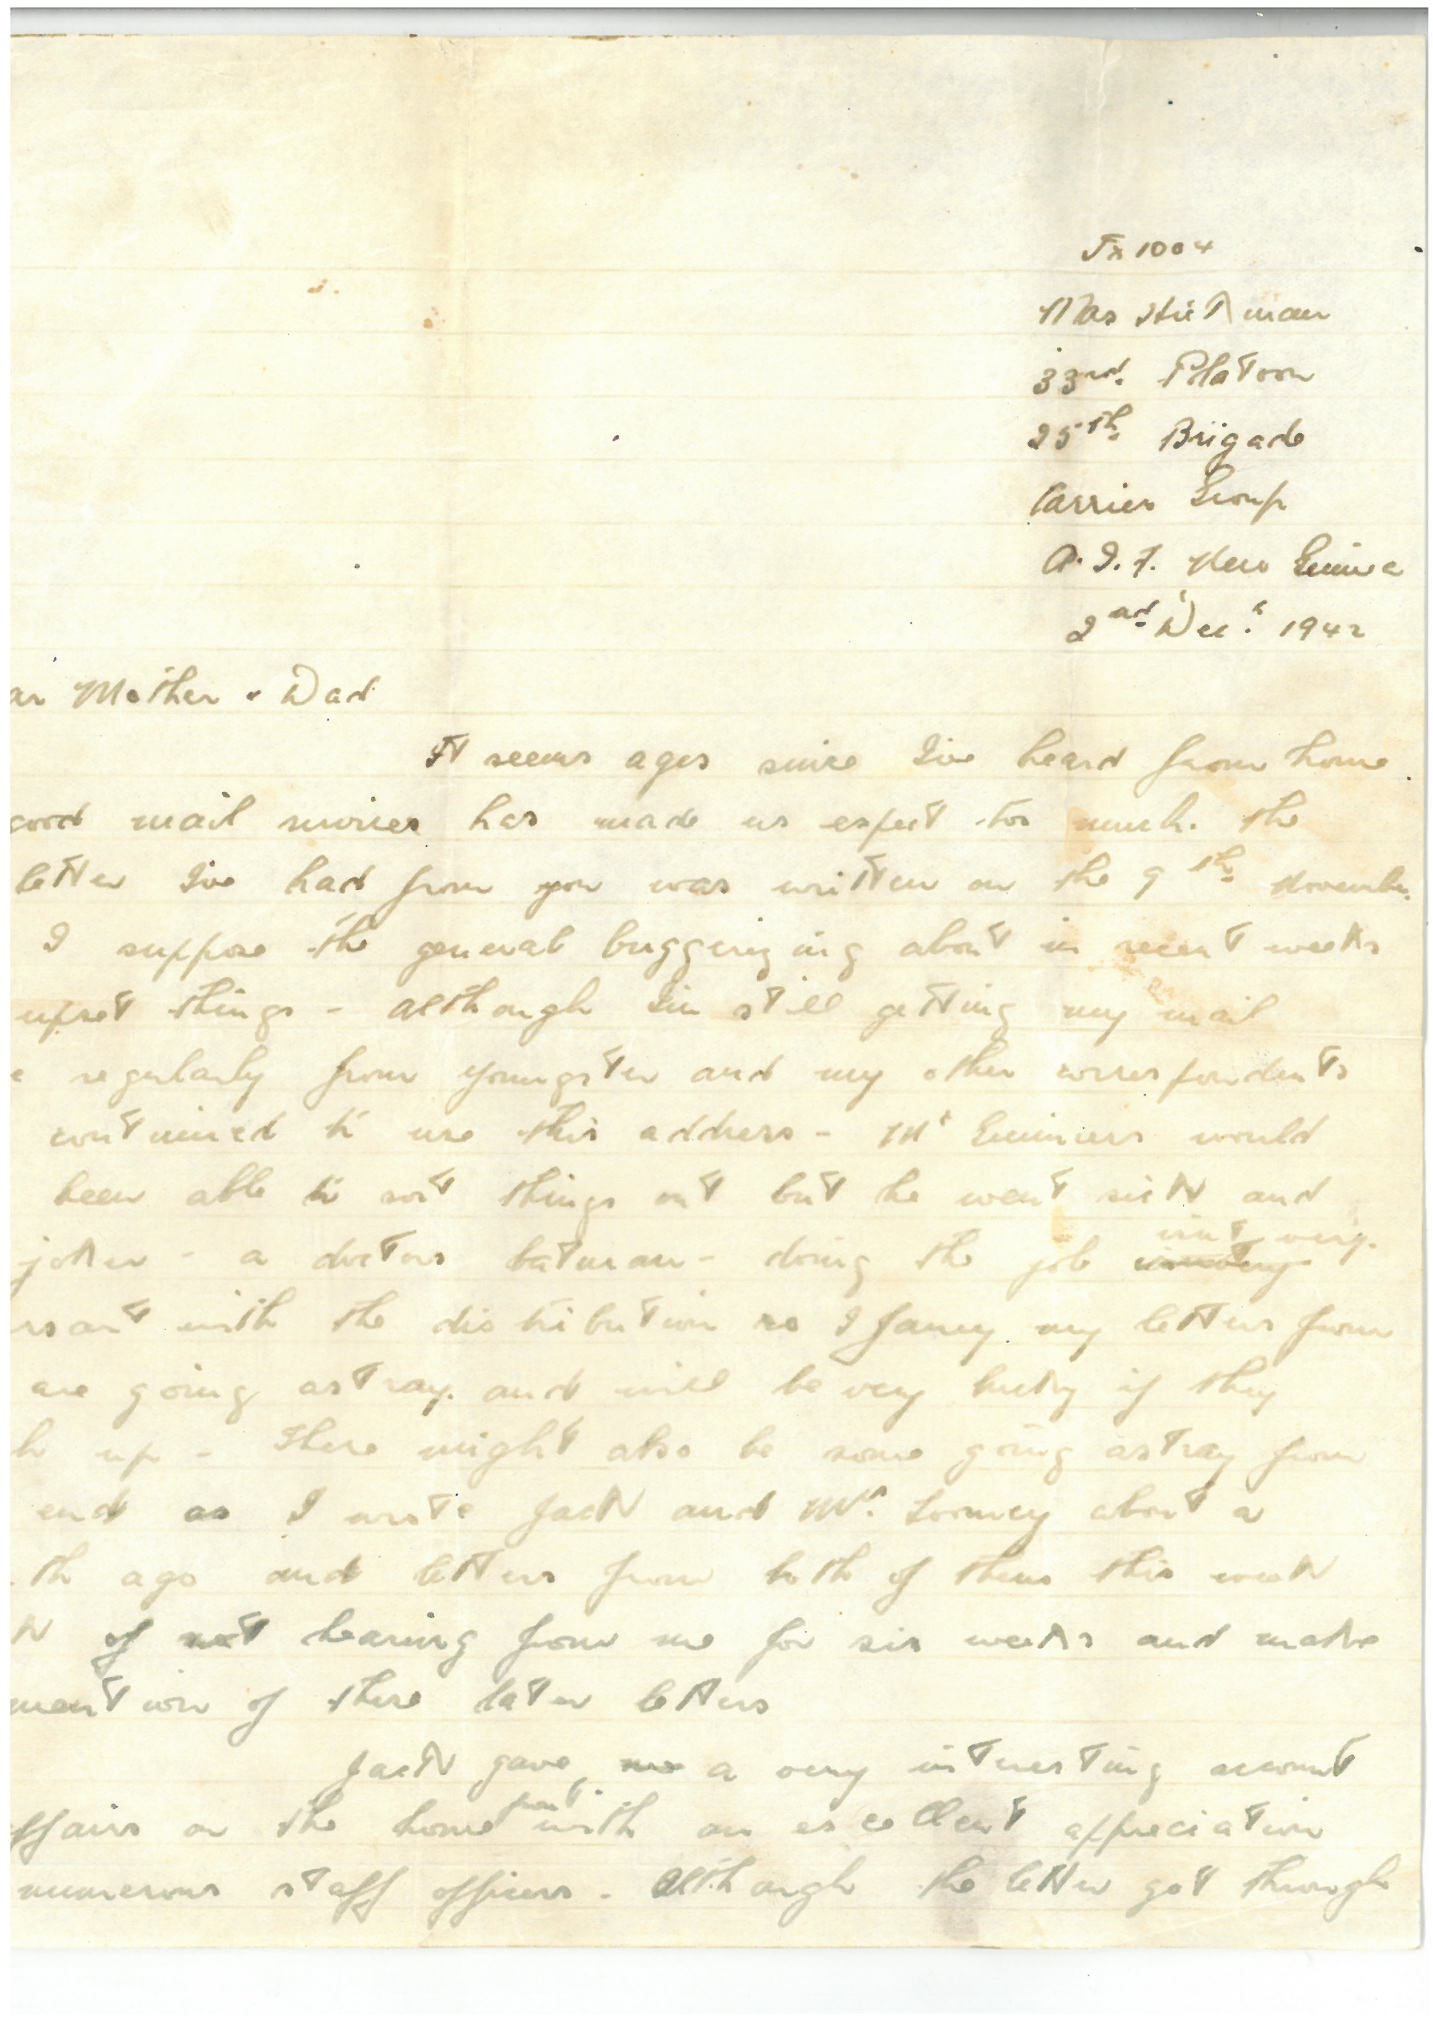 Tx 1004
Max Hickman
33rd. Platoon
25th. Brigade
Carrier Group
A.I.F. New Guinea
2nd. Dec. 1942
ar Mother & Dad
It seems ages since I've heard from home
good mail services has made us expect too much. The
letter I've had from you was written on the 9th. November.
I suppose the general buggerizing about in recent weeks
upset things - although I'm still getting my mail
regularly from youngster and my other correspondents
continued to use this address - Mc Guiness would
been able to sort things out but he went sick and
joker - a doctors batman - doing the job isnt very.
rsant with the distribution so I fancy my letters from
are going astray. and will be very lucky if they
h up - There might also be some going astray from
end as I wrote Jack and Mrs. Loomey about a
th ago and letters from both of them this week
k of not hearing from me for six weeks and make
mention of these later letters
Jack gave me a very interesting account
ffairs on the home front. with an excellent appreciation
numerous staff officers. Although the letter got through